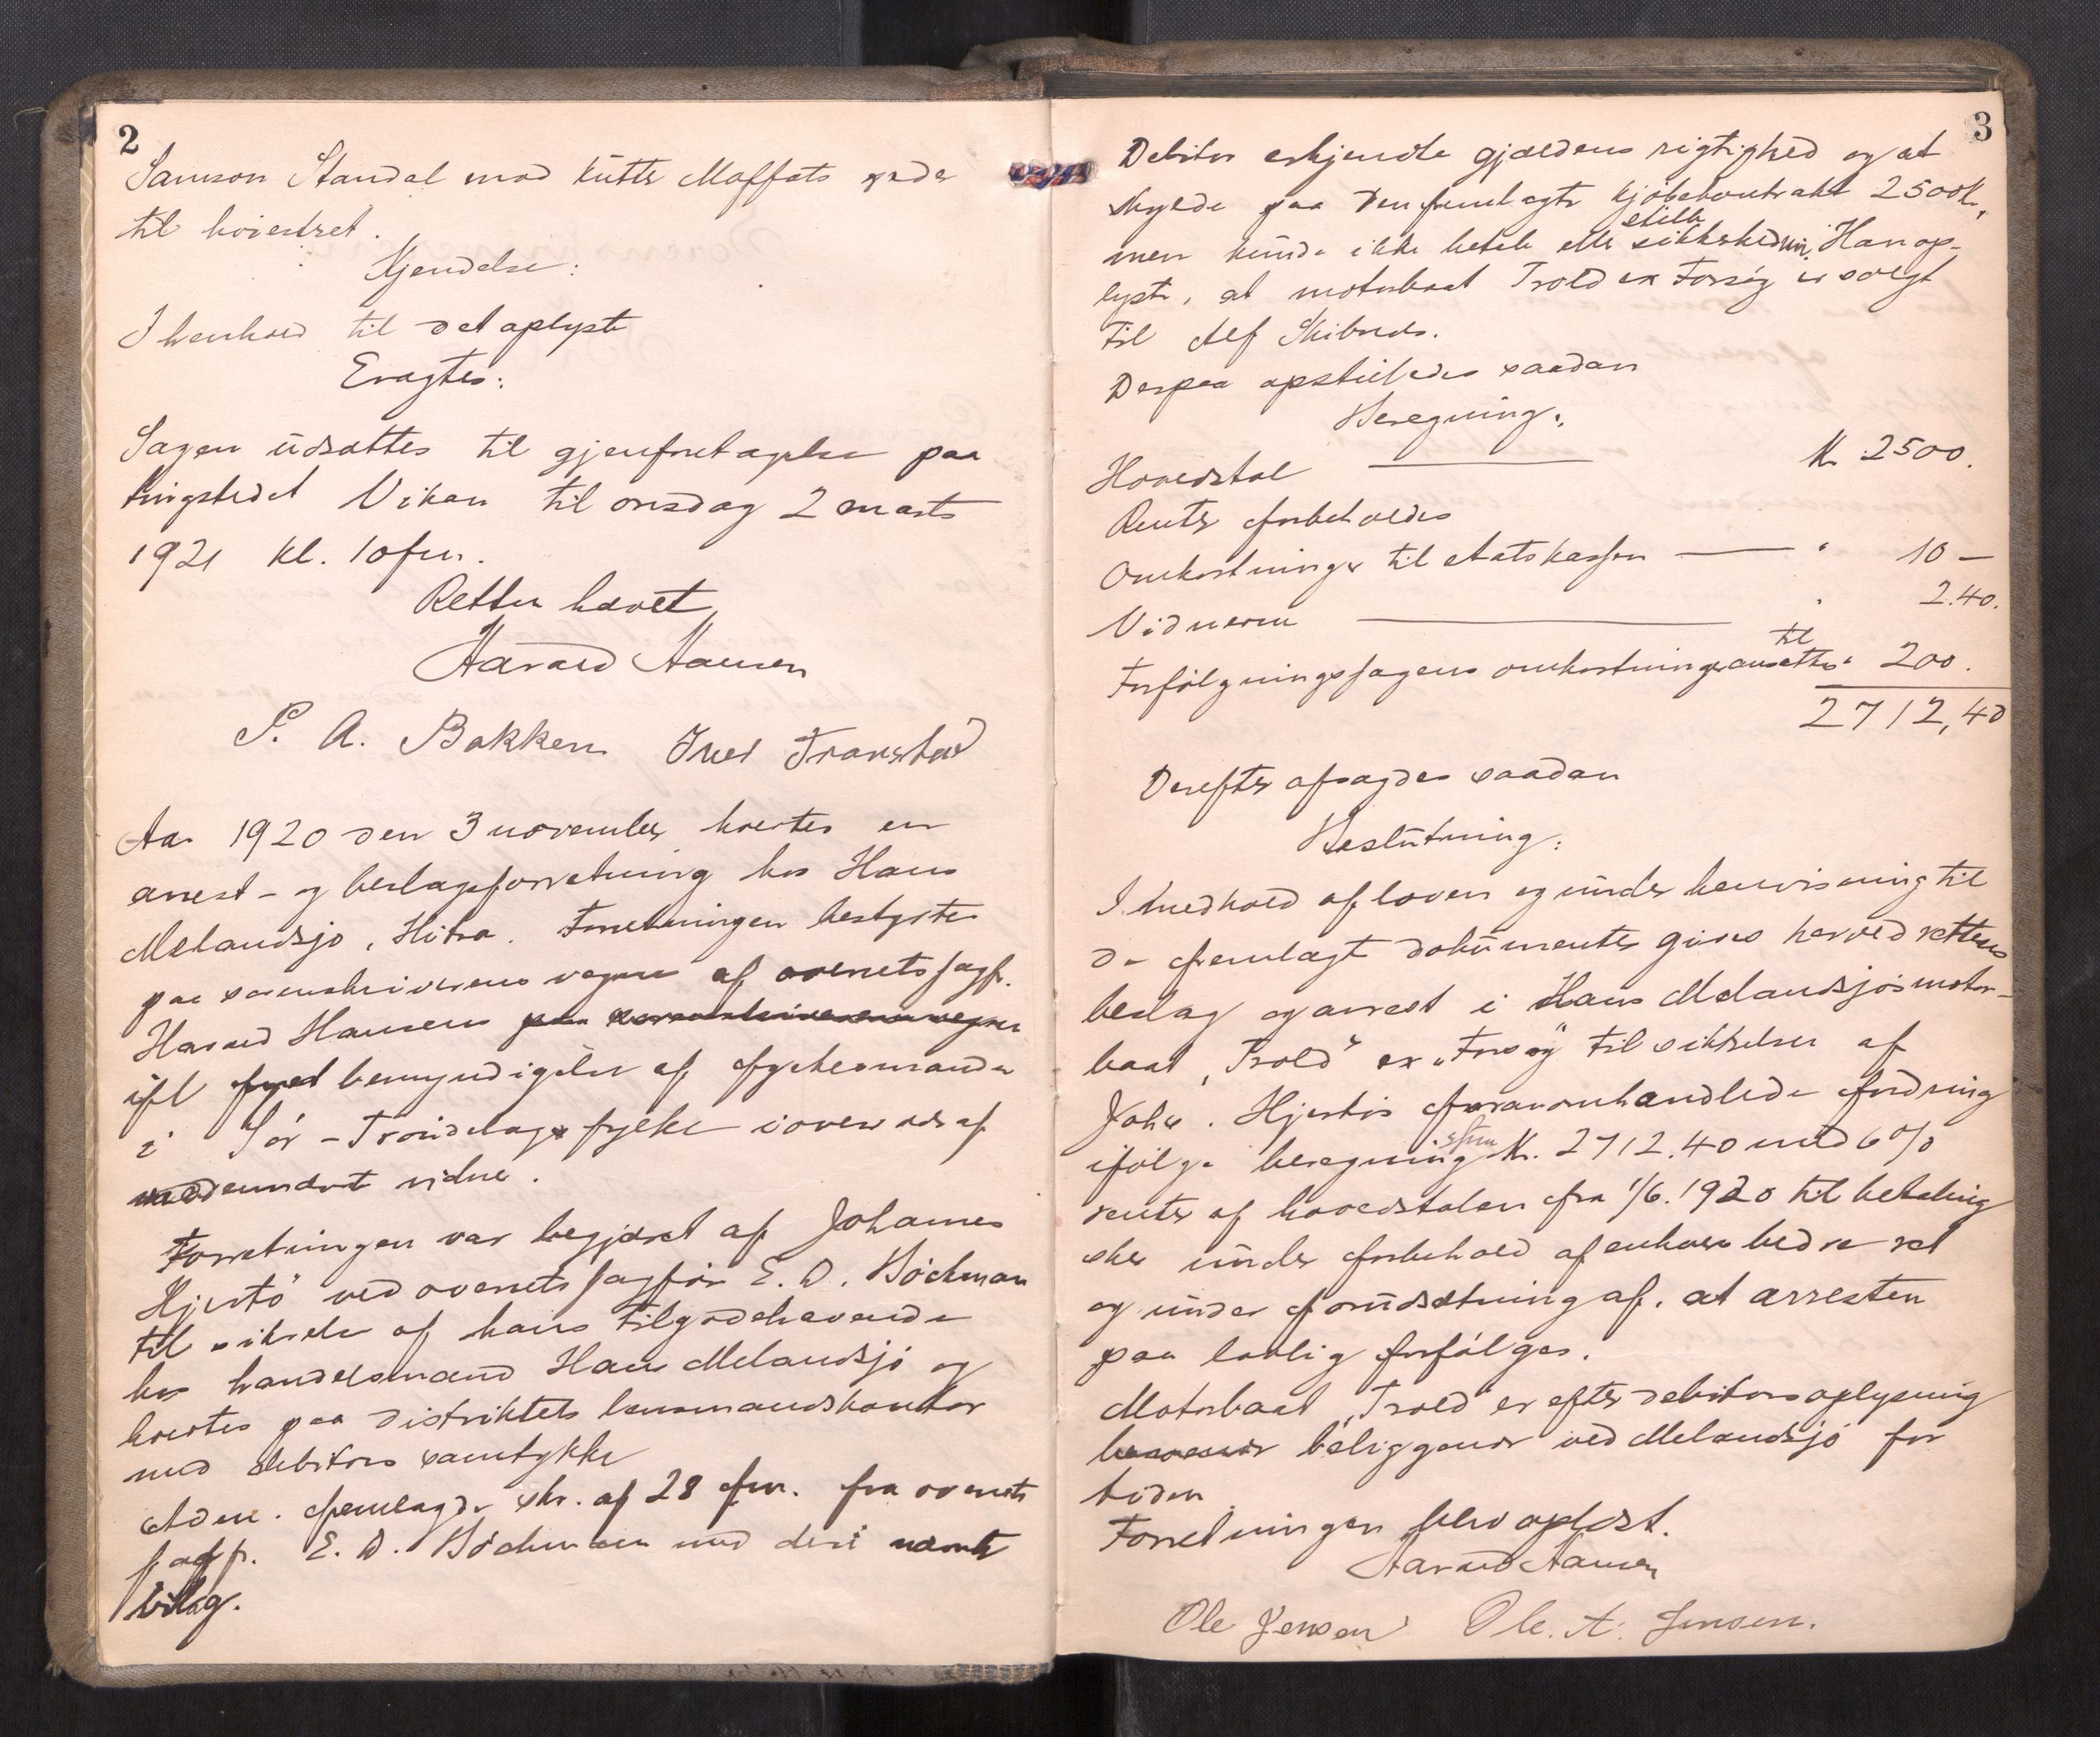 2
Samson Standal mod kutter Moffats rederi
til høiesteret.
Kjendelse:
I henhold til det oplyste
Eragtes:
Sagen udsættes til gjenforetagelse paa
tingstedet Viken til onsdag 2 marts
1921 kl. 10 fm.
Retten hævet
Harald Hansen
P. A. Bakken Iver Transtad
Aar 1920 den 3 november holdtes en
arrest- og beslagsforretning hos Hans
Melandsjø, Hitra. Forretningen bestyrtes
paa sorenskriverens vegne af overretssagf.
Harald Hansen paa sorenskriverens vegne
ifl bemyndigelse af fylkesmanden
i Sør-Trøndelags fylke i overvær af
medundert. vidner.
Forretningen var begjæret af Johannes
Hjertø ved overretssagfør E. D. Bödtman
til sikrelse af hans tilgodehavende
hos handelsmand Hans Melandsjø og
holdtes paa distriktets lensmandskontor
med debitors samtykke
Adm. fremlagde skr. af 28 fm. fra overrets
sagf. E. D. Bödtman med deri nævnte
bilag.
3
Debitor erkjendte gjældens rigtighed og at
skylde paa den fremlagte kjøbekontrakt 2500 kr,
men kunde ikke betale eller stille sikkerhed. Han op-
lyste, at motorbaat Trold ex Forsøg er solgt
til Alf Skibnes.
Derpaa opstilledes saadan
Beregning:
Hovedstol — Kr. 2500.
Renter forbeholdes
Omkostninger til statskassen — " 10 —
Vidnerne — " 2.40.
Forfølgningssagens omkostninger ansættes til " 200.
2712,40
Derefter afsagdes saadan
Beslutning:
I medhold af loven og under henvisning til
de fremlagte dokumenter gives herved rettens
beslag og arrest i Hans Melandsjøs motor-
baat "Trold" ex "Forsøg" til sikkelse af
Johs. Hjertøs foranomhandlede fordring
ifølge beregning stor Kr. 2712.40 med 6%
renter af hovedstolen fra 1/6. 1920 til betaling
sker under forbehold af enhver bedre ret
og under forudsætning af, at arresten
paa lovlig forfølges.
Motorbaat "Trold" er efter debitors oplysning
beliggende ved Melandsjø for
tiden.
Forretningen blev oplæst.
Harald Hansen
Ole Jensen Ole. A. Jensen.